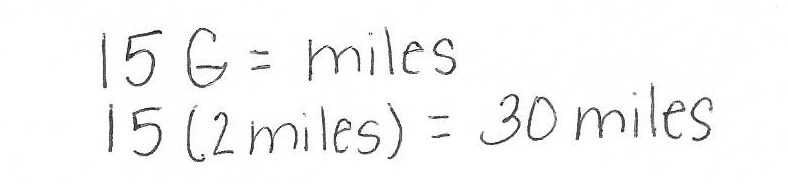 15 G = miles
15 (2 miles) = 30 miles